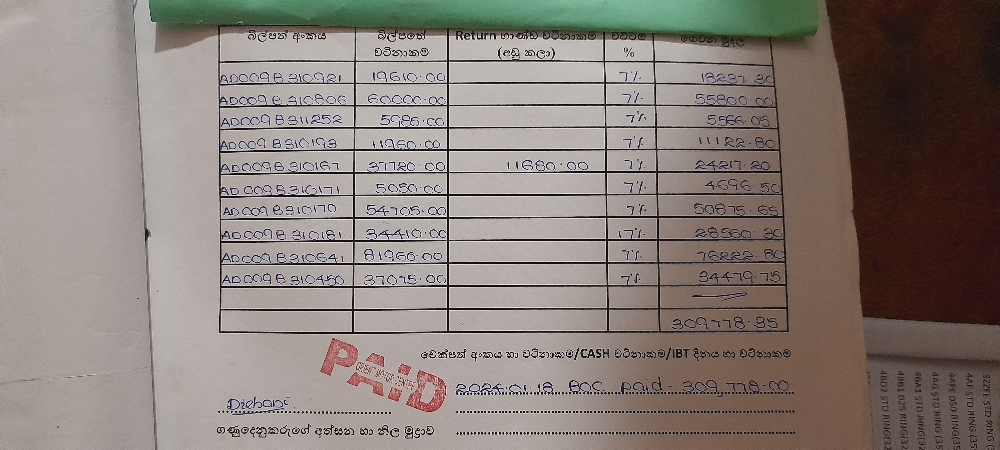 බිල්පත් අංකය බිල්පතේ වටිනාකම Return භාණ්ඩ වටිනාකම (අඩු කලා) වට්ටම් % ගෙවන මුදල
AD009B310921 19610.00 7% 18237.30
AD009B310806 60000.00 7% 55800.00
AD009B311252 5985.00 7% 5566.05
AD009B310193 11960.00 7% 11122.80
AD009B310167 37720.00 11680.00 7% 24217.20
AD009B310171 5050.00 7% 4696.50
AD009B310170 54705.00 7% 50875.65
AD009B310181 34410.00 17% 28560.30
AD009B310641 81960.00 7% 76222.80
AD009B310450 37075.00 7% 34479.75
309778.35
චෙක්පත් අංකය හා වටිනාකම/CASH වටිනාකම/IBT දිනය හා වටිනාකම
PAID
2024.01.18 BOC paid - 309,778.00
ගණුදෙනුකරුගේ අත්සන හා නිල මුද්‍රාව